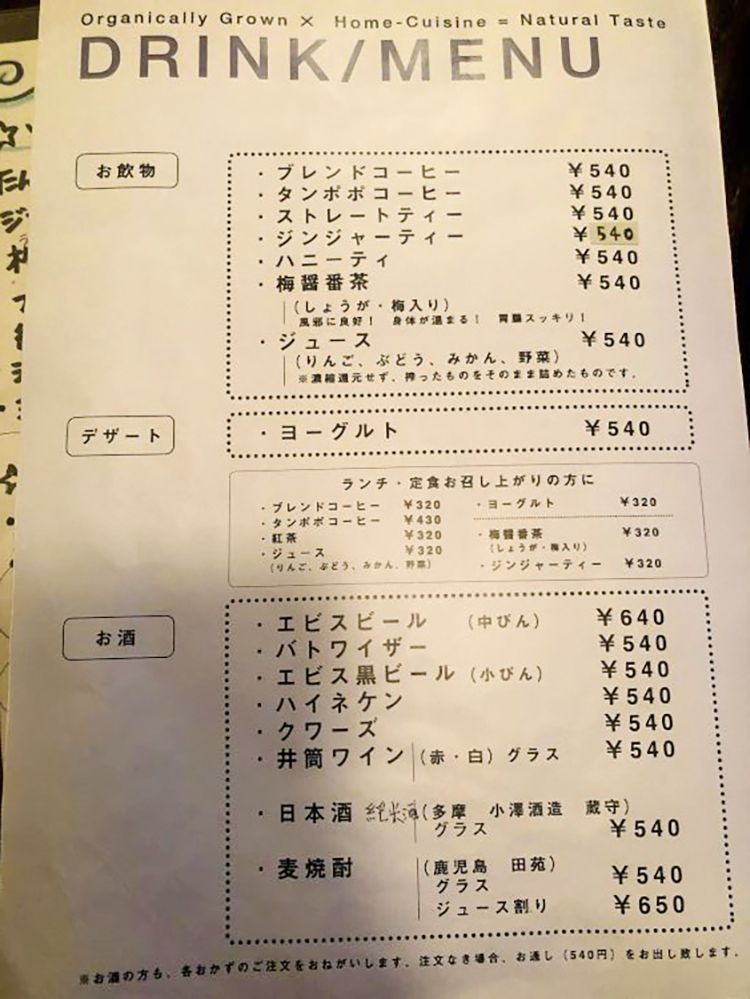 Organically Grown × Home-Cuisine = Natural Taste
DRINK/MENU
お飲物
・ブレンドコーヒー ¥540
・タンポポコーヒー ¥540
・ストレートティー ¥540
・ジンジャーティー ¥540
・ハニーティ ¥540
・梅醤番茶 ¥540
(しょうが・梅入り)
風邪に良好! 身体が温まる! 胃腸スッキリ!
・ジュース ¥540
(りんご、ぶどう、みかん、野菜)
※濃縮還元せず、搾ったものをそのまま詰めたものです。
デザート
・ヨーグルト ¥540
ランチ・定食お召し上がりの方に
・ブレンドコーヒー ¥320
・タンポポコーヒー ¥430
・紅茶 ¥320
・ジュース ¥320
(りんご、ぶどう、みかん、野菜)
・ヨーグルト ¥320
・梅醤番茶 ¥320
(しょうが・梅入り)
・ジンジャーティー ¥320
お酒
・エビスビール (中びん) ¥640
・バトワイザー ¥540
・エビス黒ビール (小びん) ¥540
・ハイネケン ¥540
・クワーズ ¥540
・井筒ワイン (赤・白) グラス ¥540
・日本酒 純米酒 (多摩 小澤酒造 蔵守)
グラス ¥540
・麦焼酎 (鹿児島 田苑)
グラス ¥540
ジュース割り ¥650
※お酒の方も、各おかずのご注文をおねがいします。注文なき場合、お通し(540円)をお出し致します。